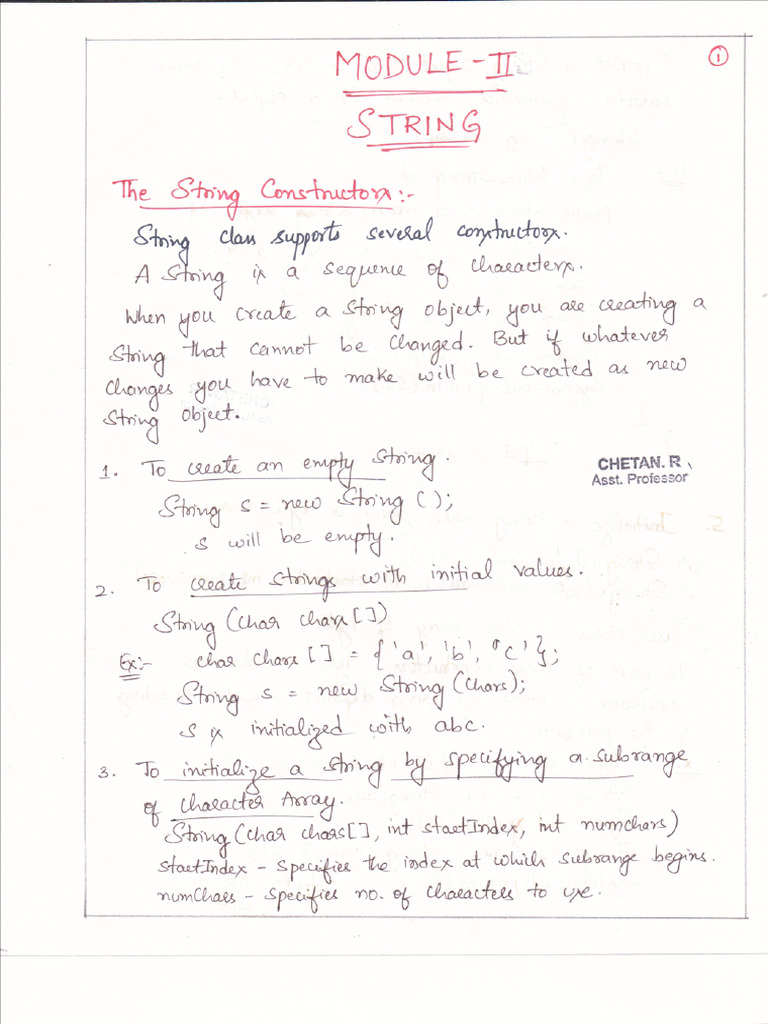 MODULE - II
1
STRING
The String Constructors:-
String class supports several constructors.
A String is a sequence of characters.
When you create a String object, you are creating a
String that cannot be changed. But if whatever
changes you have to make will be created as new
String object.
1. To create an empty String.
CHETAN. R
Asst. Professor
String s = new String ( );
s will be empty.
2. To create strings with initial values.
String (char chars [ ])
Ex:- char chars [ ] = { 'a', 'b', 'c' };
String s = new String (chars);
s is initialized with abc.
3. To initialize a string by specifying a subrange
of character Array.
String (char chars[ ], int startIndex, int numchars)
startIndex - specifies the index at which subrange begins.
numChars - specifies no. of characters to use.